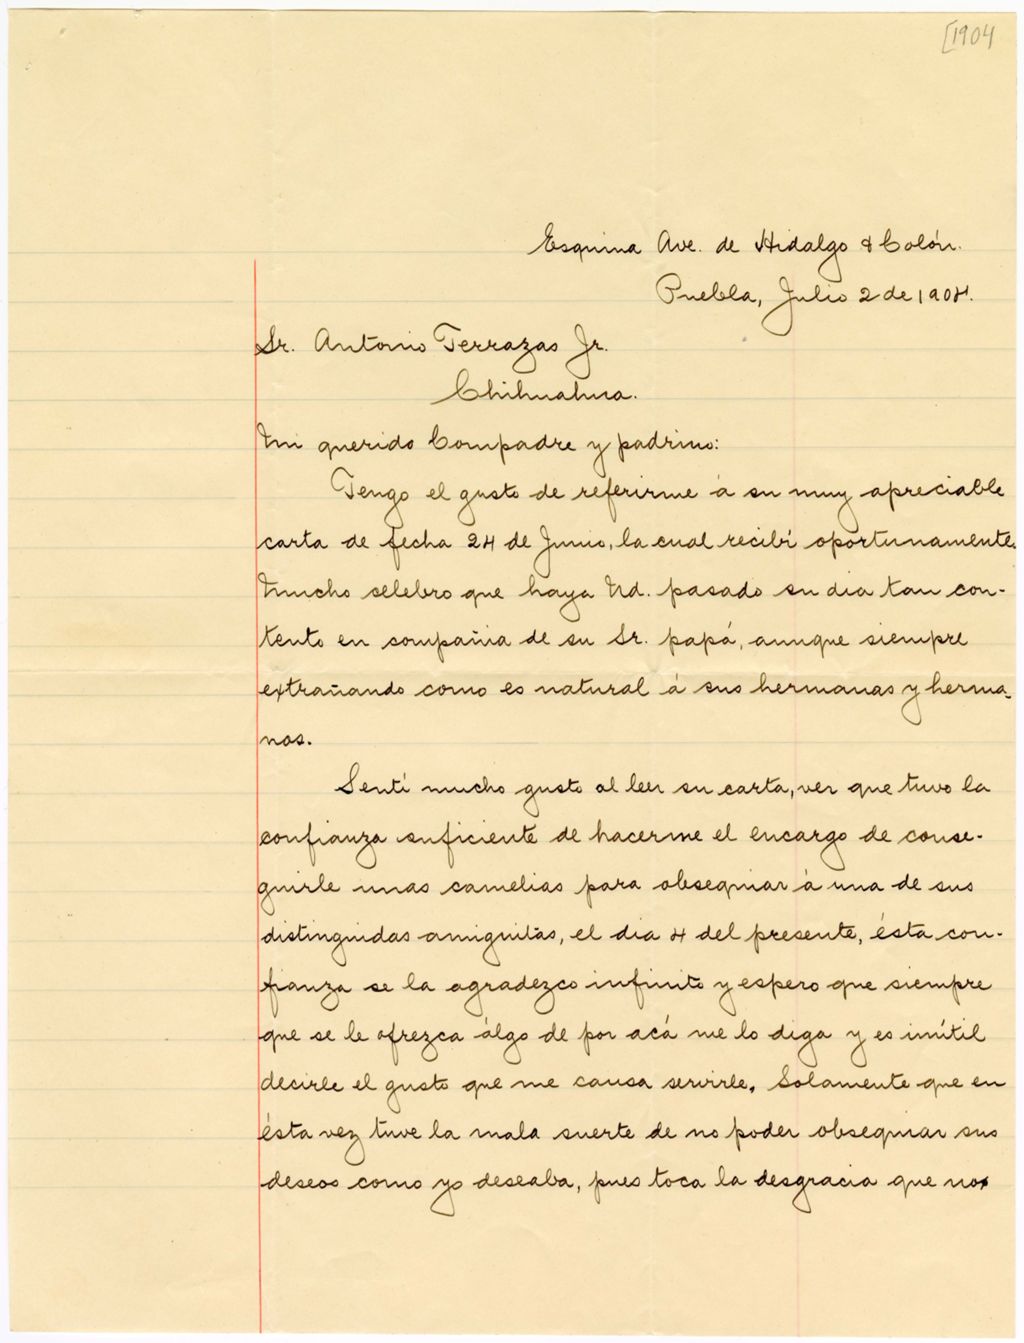 [1904
Esquina Ave. de Hidalgo & Colón.
Puebla, Julio 2 de 1904.
Sr. Antonio Terrazas Jr.
Chihuahua.
Mi querido Compadre y padrino:
Tengo el gusto de referirme á su muy apreciable
carta de fecha 24 de Junio, la cual recibí oportunamente.
Mucho selebro que haya Ud. pasado su dia tan con-
tento en compañia de su Sr. papá, aunque siempre
extrañando como es natural á sus hermanas y herma-
nos.
Sentí mucho gusto al leer su carta, ver que tuvo la
confianza suficiente de hacerme el encargo de conse-
guirle unas camelias para obsequiar á una de sus
distinguidas amiguitas, el dia 4 del presente, ésta con-
fianza se la agradezco infinito y espero que siempre
que se le ofrezca álgo de por acá me lo diga y es inútil
decirle el gusto que me causa servirle. Solamente que en
ésta vez tuve la mala suerte de no poder obsequiar sus
deseos como yo deseaba, pues toca la desgracia que no